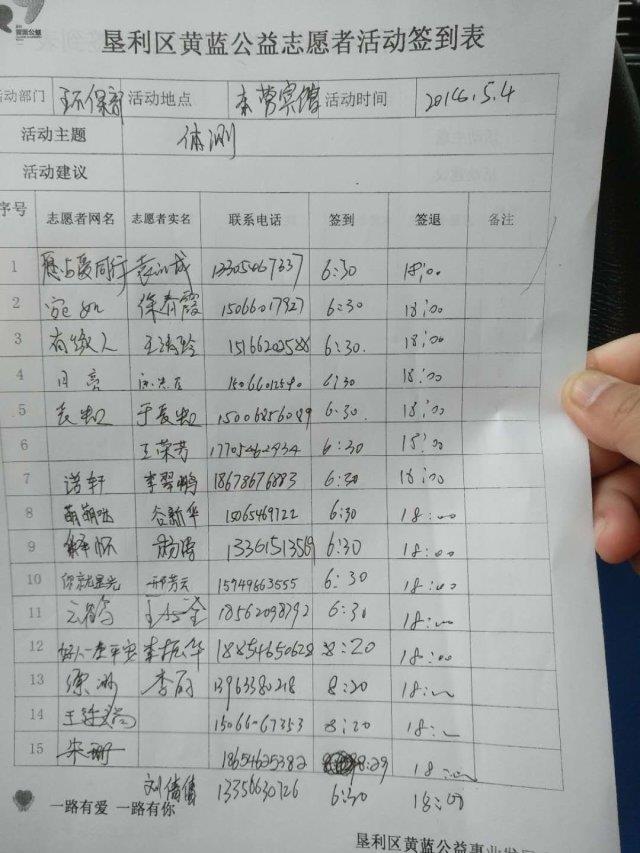 垦利区黄蓝公益志愿者活动签到表
活动部门 环保部 活动地点 东营宾馆 活动时间 2016.5.4
活动主题 体测
活动建议
序号 志愿者网名 志愿者实名 联系电话 签到 签退 备注
1 愿与爱同行 13305467337 6:30 18:00
2 宛如 徐春霞 15066017927 6:30 18:00
3 有缘人 15166202588 6:30. 18:00
4 月亮 15066012540 6:30 18:00
5 15006856089 6:30. 18:00
6 王荣芳 17705462934 6:30 18:00
7 诺轩 李翠鹏 18678676883 6:30 18:00
8 萌萌哒 谷新华 15065469722 6:30 18:00
9 杨 13361513569 6:30 18:00
10 你就是光 邢芳天 15749663555 6:30 18:00
11 云鹤 18562098792 6:30 18:00
12 好人一生平安 李振华 18854650628 8:20 18:00
13 李 13963380218 8:20 18:00
14 王 15066067353 8:20 18:00
15 朱珊 18654625382 8:29 18:00
刘倩倩 13356630726 6:30 18:00
一路有爱 一路有你
垦利区黄蓝公益事业发